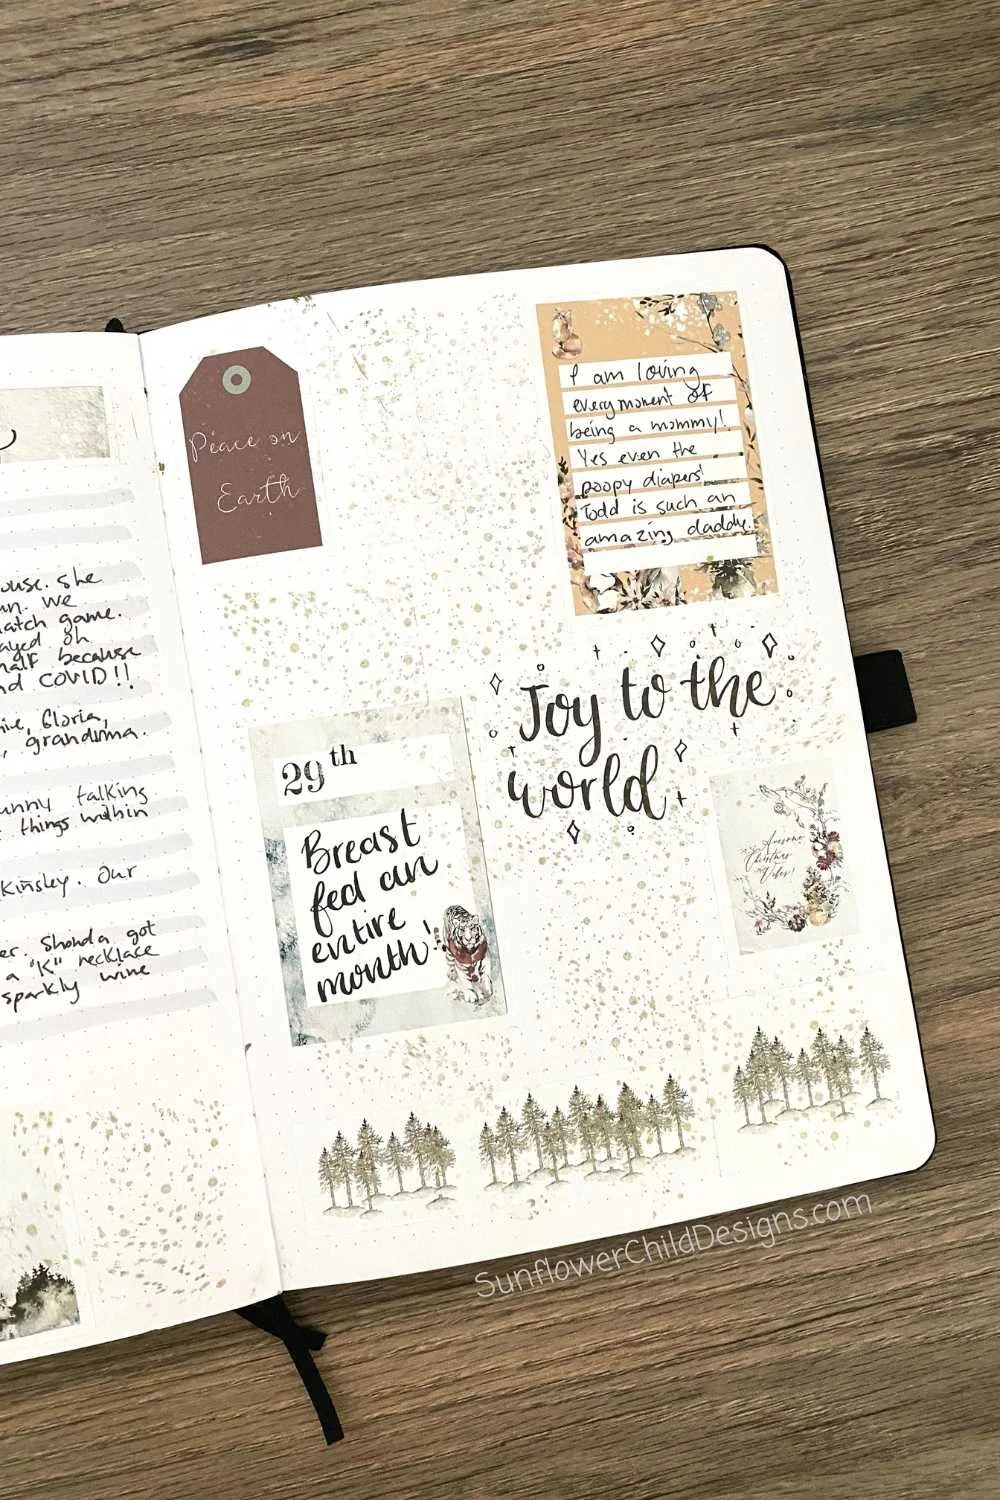 ouse. She
un. We
match game.
ayed on
half because
nd COVID!!
nie, Gloria,
, grandma.
unny talking
t things within
Kinsley. Our
er. Shonda got
a "K" necklace
sparkly wine
Peace on
Earth
I am loving
every moment of
being a mommy!
Yes even the
poopy diapers!
Todd is such an
amazing daddy.
Joy to the
world
29th
Breast
fed an
entire
month!
Awesome
Christmas
Vibes!
SunflowerChildDesigns.com